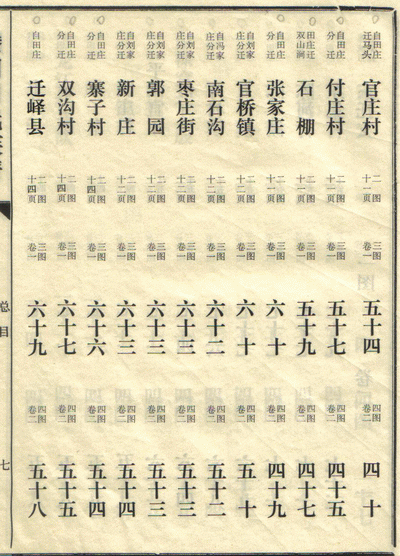 自田庄迁马头 官庄村 二图十一页 三图卷一 五十四 四图卷二 四十
自田庄分迁 付庄村 二图十一页 三图卷一 五十七 四图卷二 四十五
田庄迁双山涧 石棚 二图十一页 三图卷一 五十九 四图卷二 四十七
自田庄分迁 张家庄 二图十一页 三图卷一 六十 四图卷二 四十九
自刘家庄分迁 官桥镇 二图十二页 三图卷一 六十 四图卷二 五十
自冯家庄分迁 南石沟 二图十二页 三图卷一 六十二 四图卷二 五十二
自刘家庄分迁 枣庄街 二图十二页 三图卷一 六十三 四图卷二 五十三
自刘家庄分迁 郭园 二图十二页 三图卷一 六十三 四图卷二 五十三
自刘家庄分迁 新庄 二图十二页 三图卷一 六十三 四图卷二 五十四
自田庄分迁 寨子村 二图十四页 三图卷一 六十六 四图卷二 五十四
自田庄分迁 双沟村 二图十四页 三图卷一 六十七 四图卷二 五十五
自田庄 迁峄县 二图十四页 三图卷一 六十九 四图卷二 五十八
总目 七